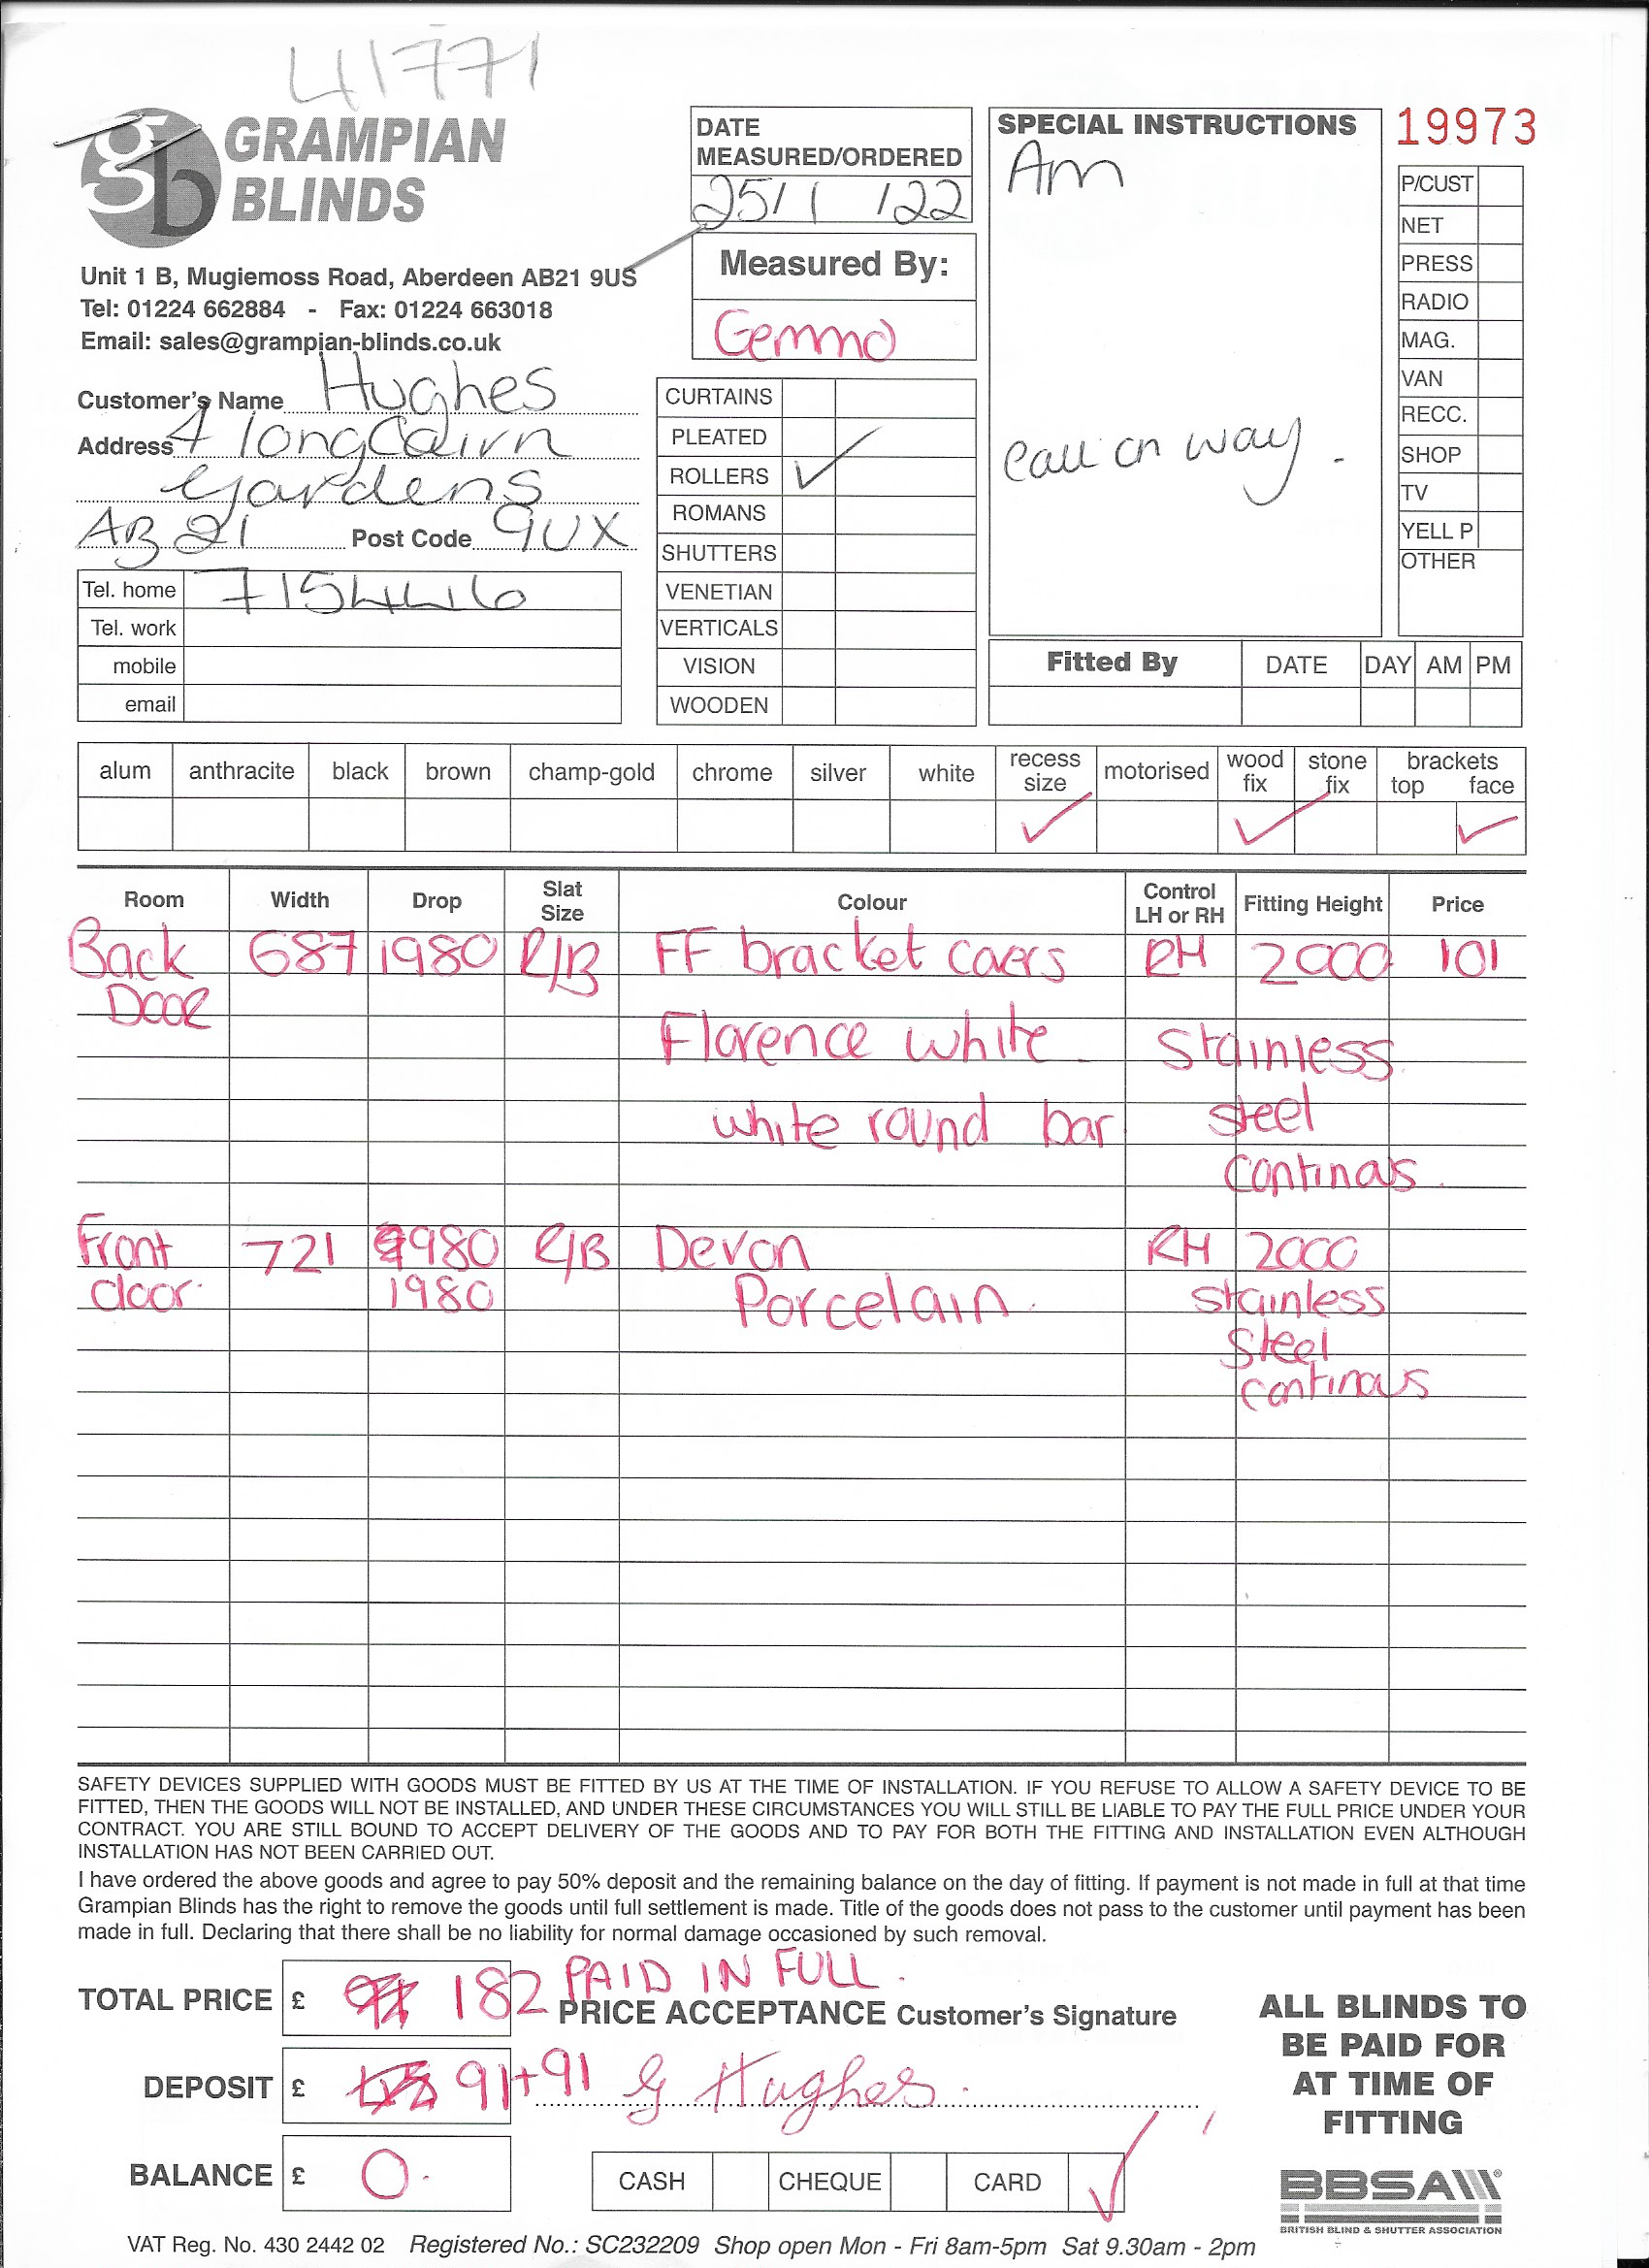 41771
GRAMPIAN
BLINDS
Unit 1 B, Mugiemoss Road, Aberdeen AB21 9US
Tel: 01224 662884 - Fax: 01224 663018
Email: sales@grampian-blinds.co.uk
DATE
MEASURED/ORDERED
25/1/22
Measured By:
Gemma
SPECIAL INSTRUCTIONS
Am
Call on way.
19973
P/CUST
NET
PRESS
RADIO
MAG.
VAN
RECC.
SHOP
TV
YELL P
OTHER
Customer's Name Hughes
Address 4 longcairn
Gardens
AB21 Post Code 9UX
Tel. home 715446
Tel. work
mobile
email
CURTAINS
PLEATED
ROLLERS ✓
ROMANS
SHUTTERS
VENETIAN
VERTICALS
VISION
WOODEN
Fitted By DATE DAY AM PM
alum anthracite black brown champ-gold chrome silver white recess size motorised wood fix stone fix brackets top face
✓ ✓ ✓
Room Width Drop Slat Size Colour Control LH or RH Fitting Height Price
Back 687 1980 R/B FF bracket covers RH 2000 101
Door
Florence white Stainless
white round bar steel
continous
Front 721 980 R/B Devon RH 2000
door 1980 Porcelain stainless
steel
continous
SAFETY DEVICES SUPPLIED WITH GOODS MUST BE FITTED BY US AT THE TIME OF INSTALLATION. IF YOU REFUSE TO ALLOW A SAFETY DEVICE TO BE
FITTED, THEN THE GOODS WILL NOT BE INSTALLED, AND UNDER THESE CIRCUMSTANCES YOU WILL STILL BE LIABLE TO PAY THE FULL PRICE UNDER YOUR
CONTRACT. YOU ARE STILL BOUND TO ACCEPT DELIVERY OF THE GOODS AND TO PAY FOR BOTH THE FITTING AND INSTALLATION EVEN ALTHOUGH
INSTALLATION HAS NOT BEEN CARRIED OUT.
I have ordered the above goods and agree to pay 50% deposit and the remaining balance on the day of fitting. If payment is not made in full at that time
Grampian Blinds has the right to remove the goods until full settlement is made. Title of the goods does not pass to the customer until payment has been
made in full. Declaring that there shall be no liability for normal damage occasioned by such removal.
TOTAL PRICE £ 182 PAID IN FULL.
PRICE ACCEPTANCE Customer's Signature
DEPOSIT £ 91+91 G Hughes
BALANCE £ 0.
CASH CHEQUE CARD ✓
ALL BLINDS TO
BE PAID FOR
AT TIME OF
FITTING
BBSA
BRITISH BLIND & SHUTTER ASSOCIATION
VAT Reg. No. 430 2442 02 Registered No.: SC232209 Shop open Mon - Fri 8am-5pm Sat 9.30am - 2pm